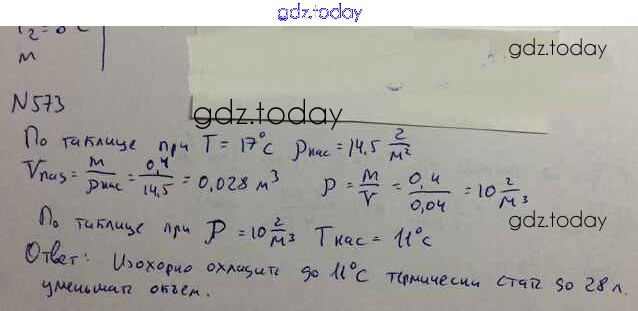 gdz.today
T₂ = 0°C
м
gdz.today
N 573
gdz.today
По таблице при T = 17°C ρнас = 14,5 г/м²
Vнас = м/ρнас = 0,4/14,5 = 0,028 м³ ρ = м/V = 0,4/0,04 = 10 г/м³
gdz.today
По таблице при ρ = 10 г/м³ Tнас = 11°C
Ответ: Изохорно охладить до 11°C термически стат до 28 л.
уменьшать объем.